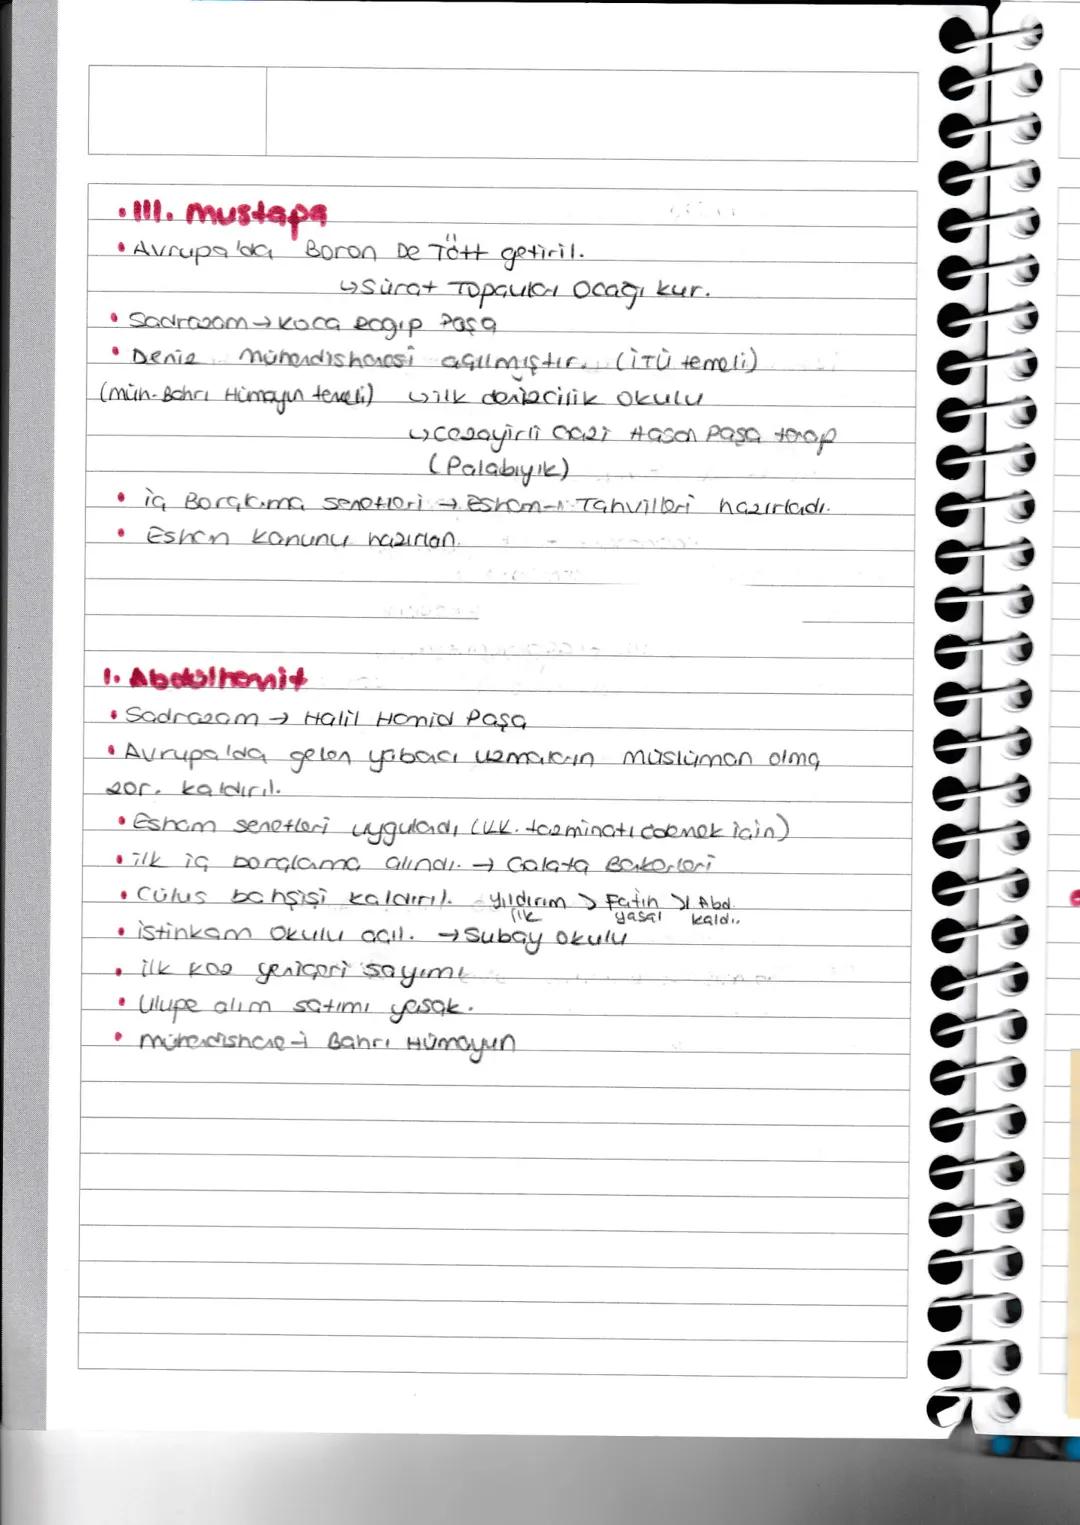 • III. Mustapa
• Avrupa'da Boron De Tött getiril.
↳ Sürat Topçuları Ocağı kur.
• Sadrazam → Koca Ragıp Paşa
• Deniz Mühendishanesi açılmıştır. (İTÜ temeli)
(Müh-Bahri Hümayun temeli) ↳ ilk denizcilik okulu
↳ Cezayirli Gazi Hasan Paşa tarap
(Palabıyık)
• iç Borçlama senetleri → Esham-ı Tahvilleri hazırladı.
• Esham Kanunu hazırlan.
I. Abdülhamit
• Sadrazam → Halil Hamid Paşa
• Avrupa'da gelen yabacı uzmanların müslüman olma
zor. kaldırıl.
• Esham senetleri uyguladı (KK. tazminatı ödemek için)
• ilk iç borçlama alındı. → Galata Bankerleri
• Cülus bahşişi kaldırıl. Yıldırım > Fatih > I Abd.
ilk yasal kaldı..
• istihkam Okulu açıl. → Subay okulu
• ilk kez yeniçeri sayımı
• Ulupe alım satımı yasak.
• mühendishane-i Bahri Hümayun